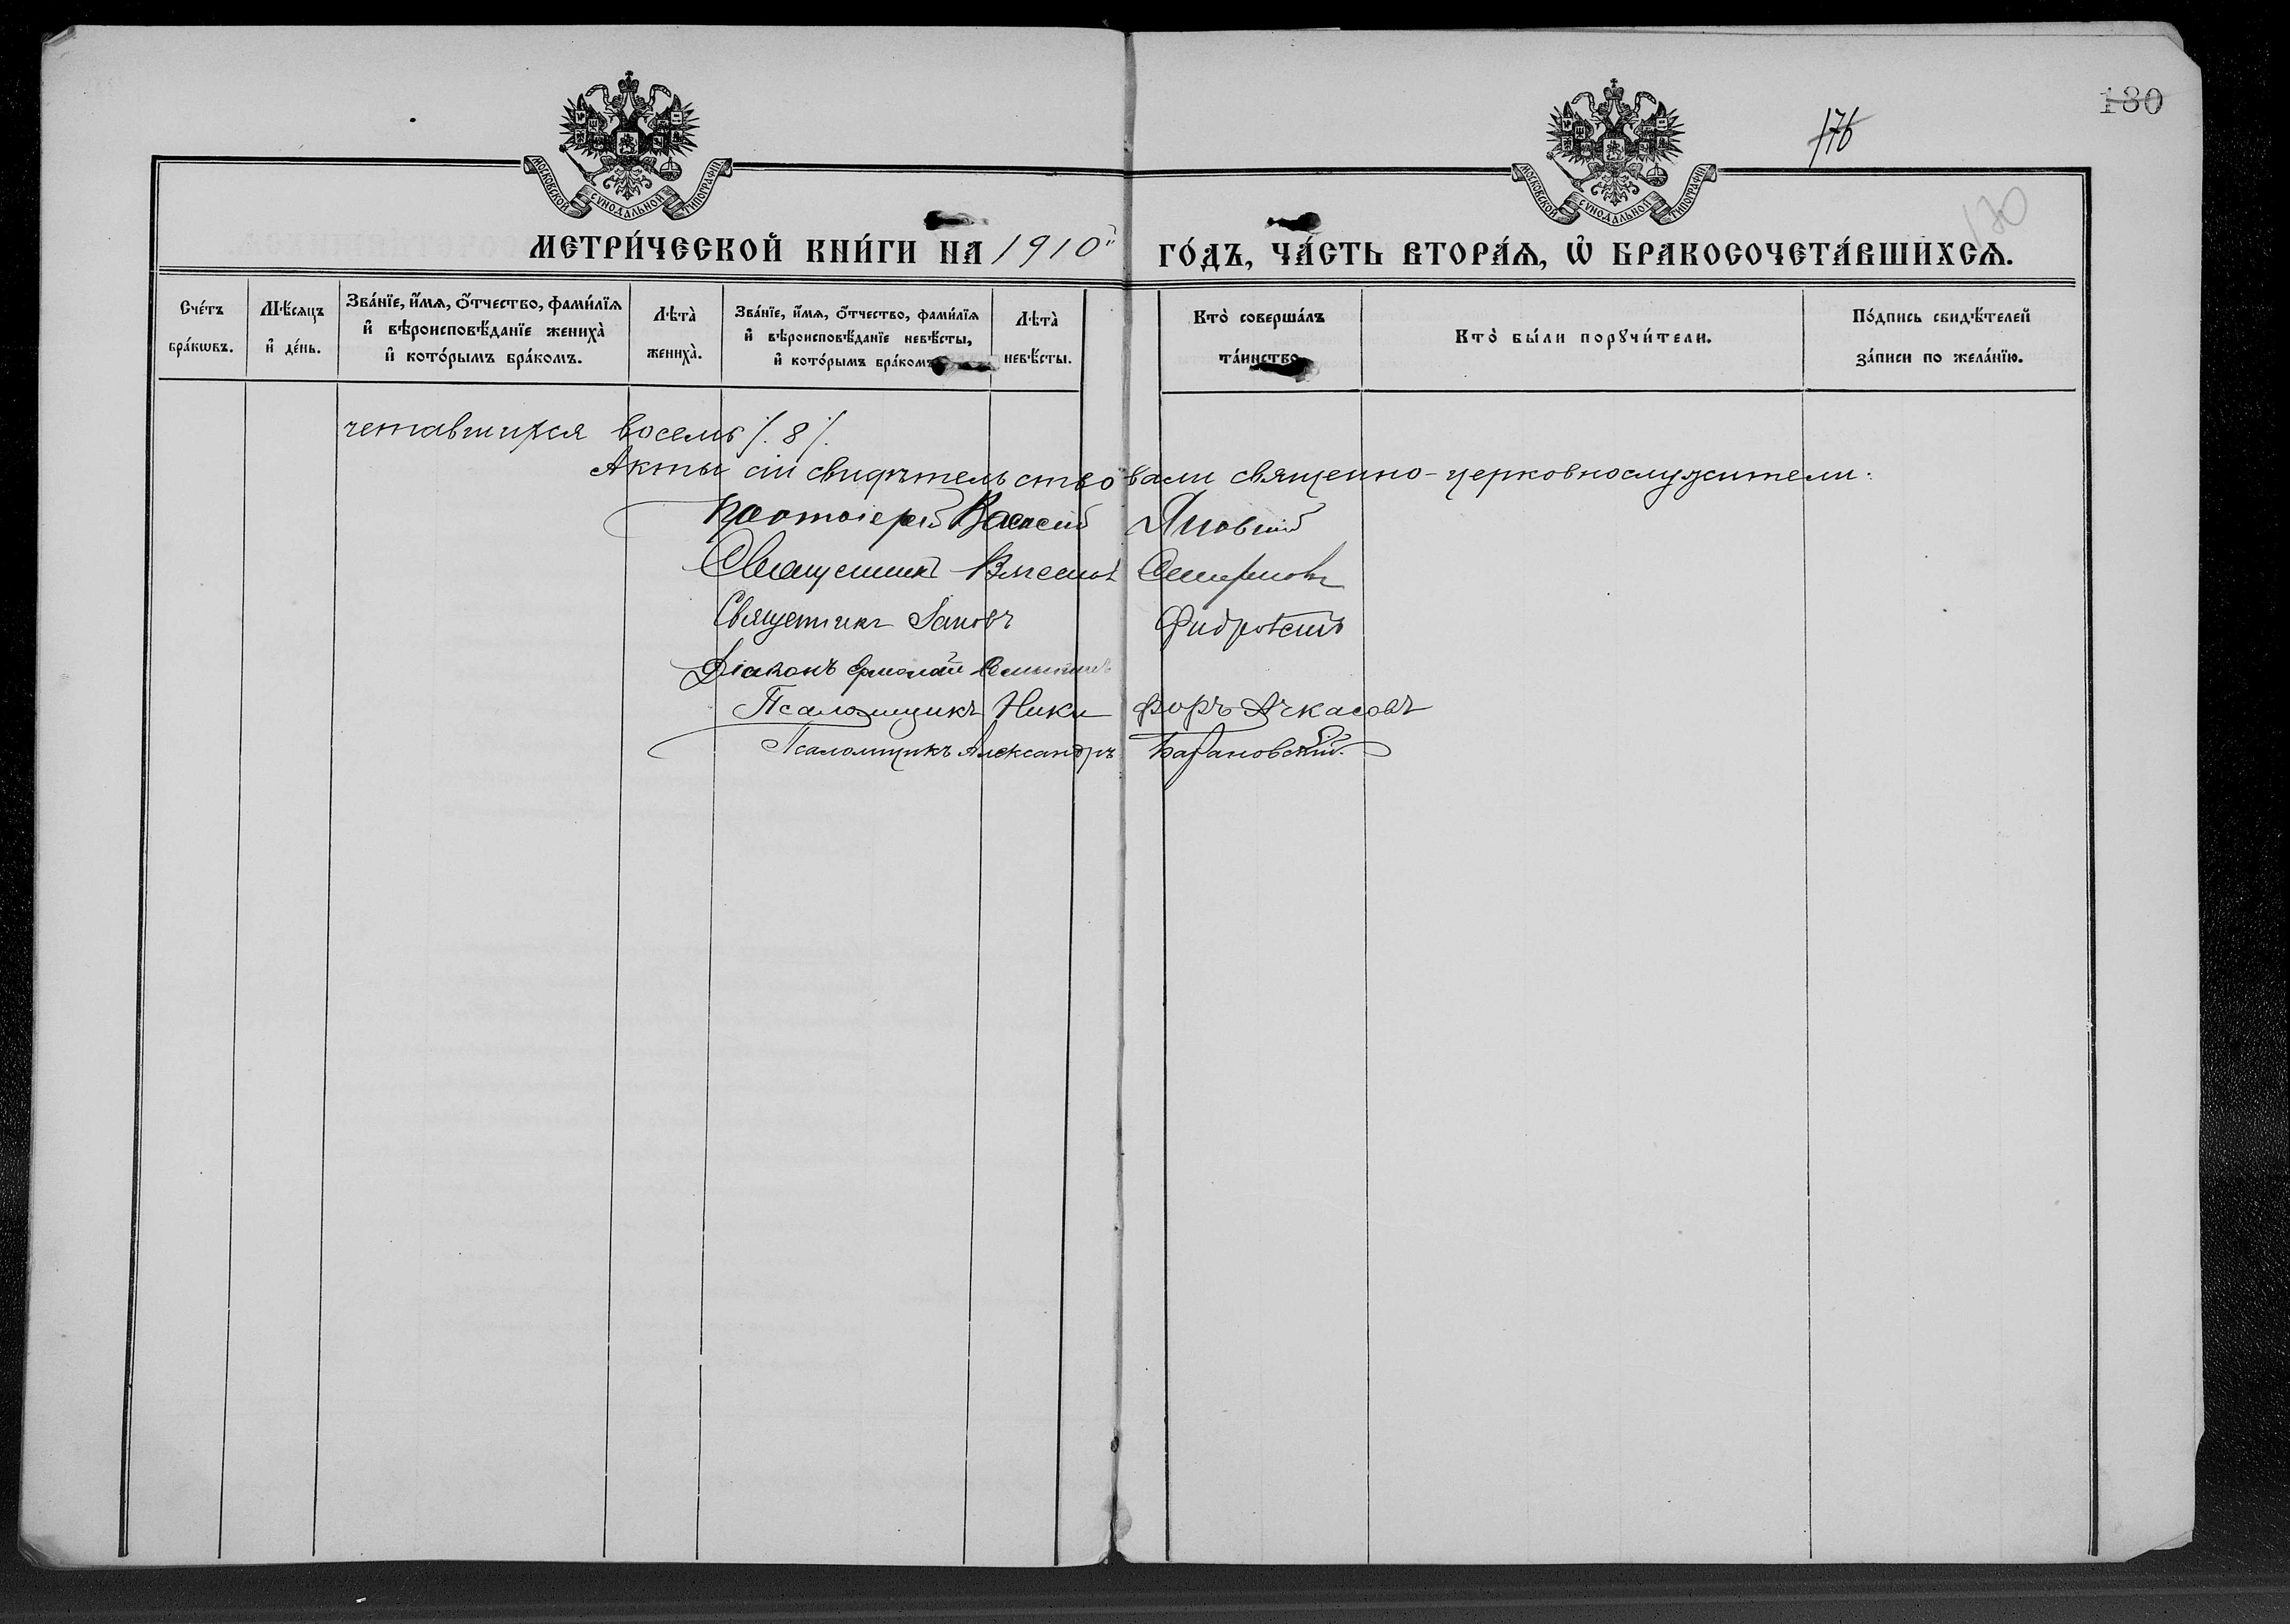 130
176
170
МОСКОВСКОЙ СѴНОДАЛЬНОЙ ТИПОГРАФІИ
МОСКОВСКОЙ СѴНОДАЛЬНОЙ ТИПОГРАФІИ
МЕТРИ́ЧЕСКОЙ КНИ́ГИ НА 1910 ГО́ДЪ, ЧА́СТЬ ВТОРА́Ѧ, Ѡ҆ БРАКОСОЧЕТА́ВШИХСѦ.
Сче́тъ бра́кѡвъ.
Мѣ́сѧцъ и҆ де́нь.
Зва́нїе, и҆́мѧ, ѻ҆́тчество, фами́лїѧ и҆ вѣроисповѣ́данїе жениха̀ и҆ кото́рымъ бра́комъ.
Лѣта̀ жениха̀.
Зва́нїе, и҆́мѧ, ѻ҆́тчество, фами́лїѧ и҆ вѣроисповѣ́данїе невѣ́сты, и҆ кото́рымъ бра́комъ
Лѣта̀ невѣ́сты.
Кто̀ соверша́лъ та́инство
Кто̀ бы́ли порꙋчи́тели.
По́дпись свидѣ́телей за́писи по жела́нїю.
четавшихся восемь /. 8 /.
Акты сіи свидѣтельствовали священно-церковнослужители:
Протоіерей Василій Яновскій
Священникъ Смирновъ
Священникъ Іаковъ
Діаконъ Ермолай
Псаломщикъ Никифоръ Ачкасовъ
Псаломщикъ Александръ Барановскій.